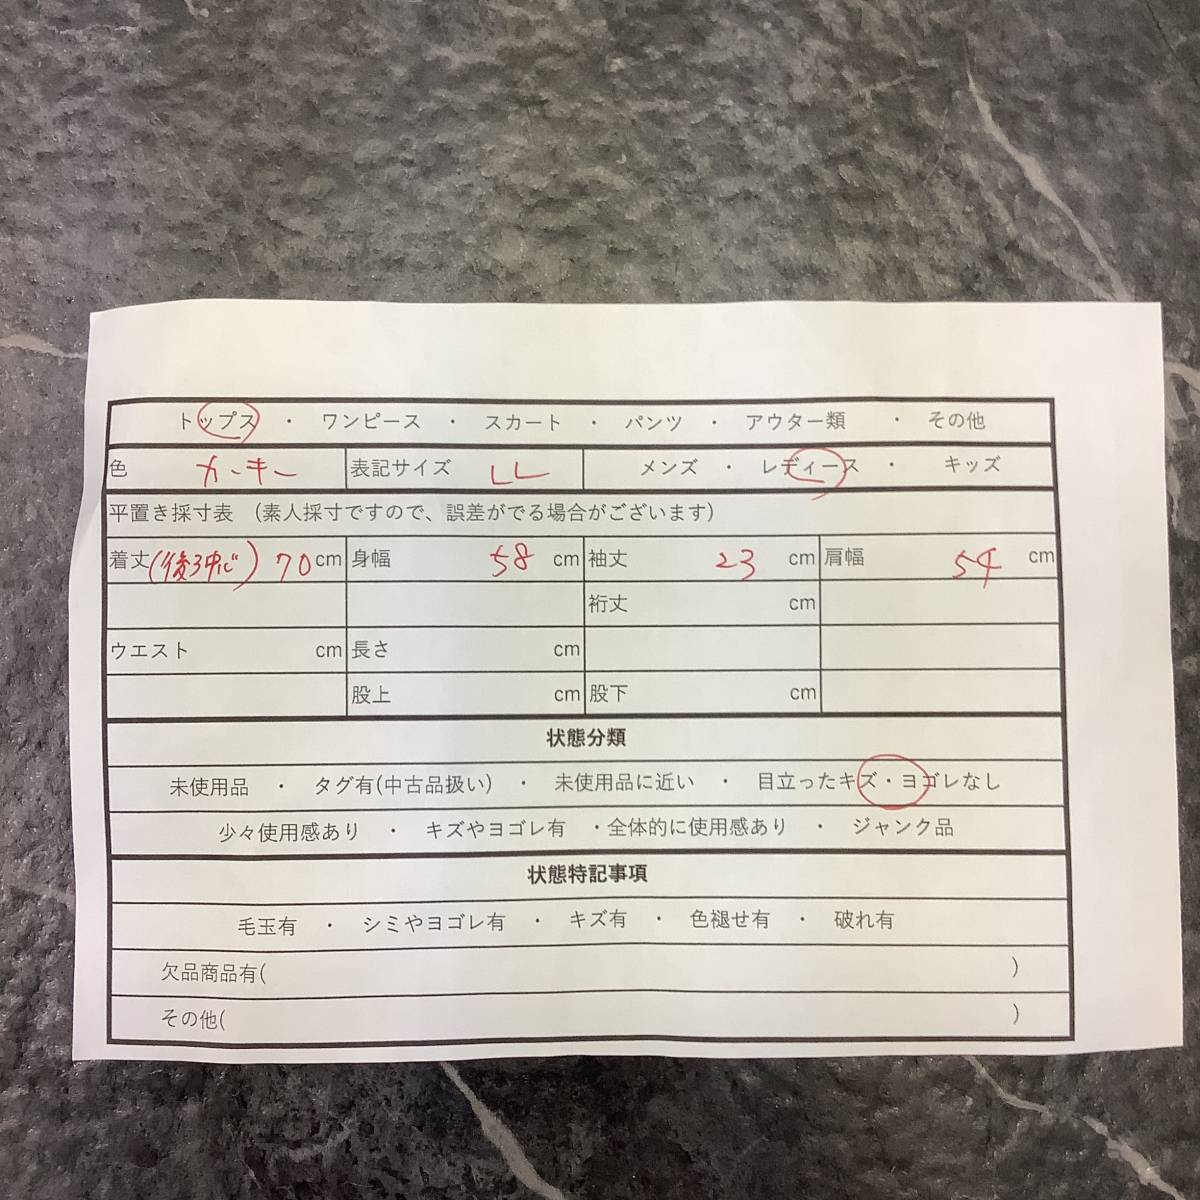 トップス ・ ワンピース ・ スカート ・ パンツ ・ アウター類 ・ その他
色 カーキー 表記サイズ LL メンズ ・ レディース ・ キッズ
平置き採寸表 (素人採寸ですので、誤差がでる場合がございます)
着丈(後ろ中心) 70cm 身幅 58 cm 袖丈 23 cm 肩幅 54 cm
裄丈 cm
ウエスト cm 長さ cm
股上 cm 股下 cm
状態分類
未使用品 ・ タグ有(中古品扱い) ・ 未使用品に近い ・ 目立ったキズ・ヨゴレなし
少々使用感あり ・ キズやヨゴレ有 ・全体的に使用感あり ・ ジャンク品
状態特記事項
毛玉有 ・ シミやヨゴレ有 ・ キズ有 ・ 色褪せ有 ・ 破れ有
欠品商品有( )
その他( )